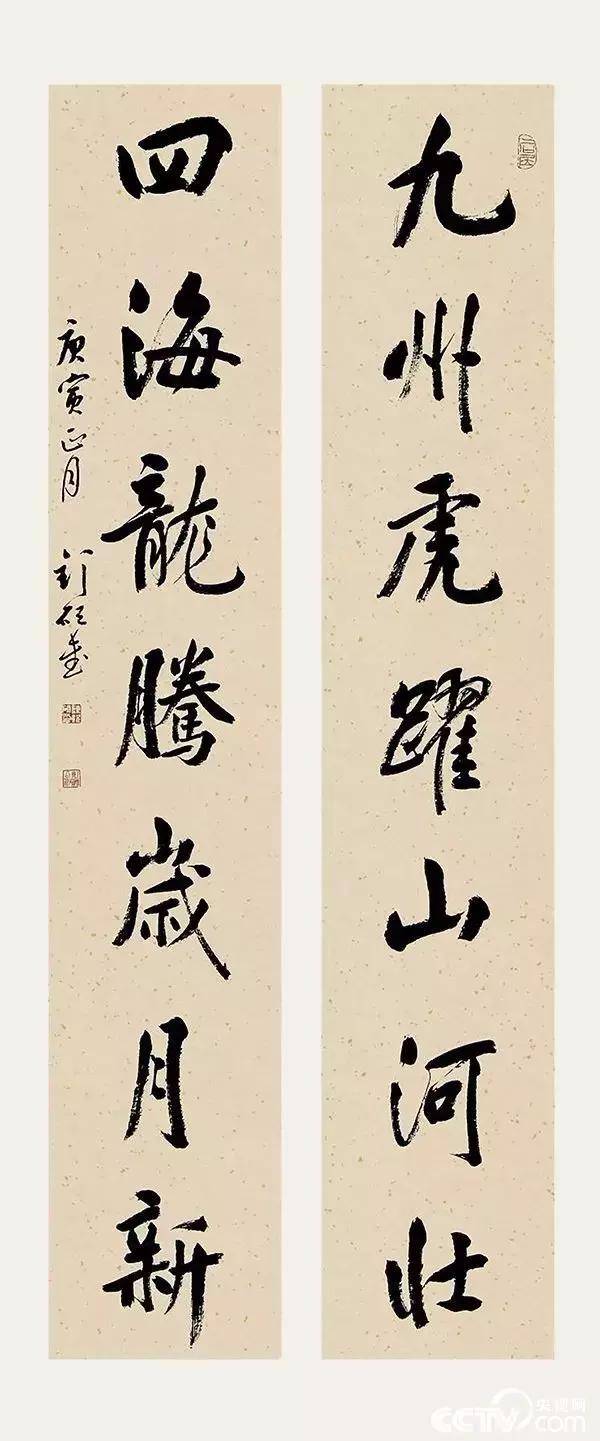 九州虎躍山河壯
四海龍騰歲月新
庚寅正月
央视网
CCTV.com